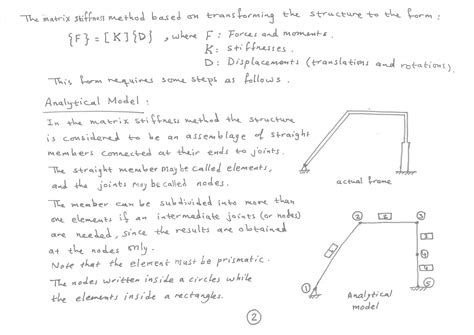 The matrix stiffness method based on transforming the structure to the form:
{F} = [K]{D} , where F : Forces and moments.
K : Stiffnesses.
D : Displacements (translations and rotations).
This form requires some steps as follows.
Analytical Model :
In the matrix stiffness method the structure
is considered to be an assemblage of straight
members connected at their ends to joints.
The straight member may be called elements,
and the joints may be called nodes.
The member can be subdivided into more than
one elements if an intermediate joints (or nodes)
are needed, since the results are obtained
at the nodes only.
Note that the element must be prismatic.
The nodes written inside a circles while
the elements inside a rectangles.
actual frame
2
2
3
1
3
4
4
1
5
Analytical
model
2